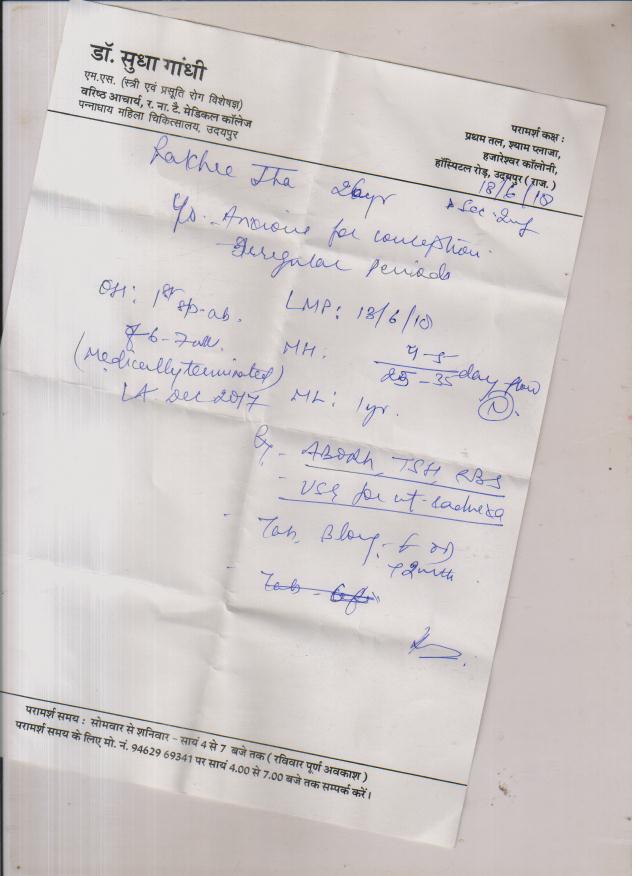 डॉ. सुधा गांधी
एम.एस. (स्त्री एवं प्रसूति रोग विशेषज्ञ)
वरिष्ठ आचार्य, र. ना. टै. मेडिकल कॉलेज
पन्नाधाय महिला चिकित्सालय, उदयपुर
परामर्श कक्ष :
प्रथम तल, श्याम प्लाजा,
हजारेश्वर कॉलोनी,
हॉस्पिटल रोड़, उदयपुर (राज.)
18/6/18
Rakhee Jha 26yr
Anxious for conception.
Irregular Periods
OH: 1st sp-ab. LMP: 18/6/18
MH: 4-5
(Medically terminated) 25-35 day flow
LA Dec 2017 ML: 1yr. (N).
ABORh, TSH, RBS
USG for ut-
Tab.
Tab -
परामर्श समय : सोमवार से शनिवार – सायं 4 से 7 बजे तक ( रविवार पूर्ण अवकाश )
परामर्श समय के लिए मो. नं. 94629 69341 पर सायं 4.00 से 7.00 बजे तक सम्पर्क करें।